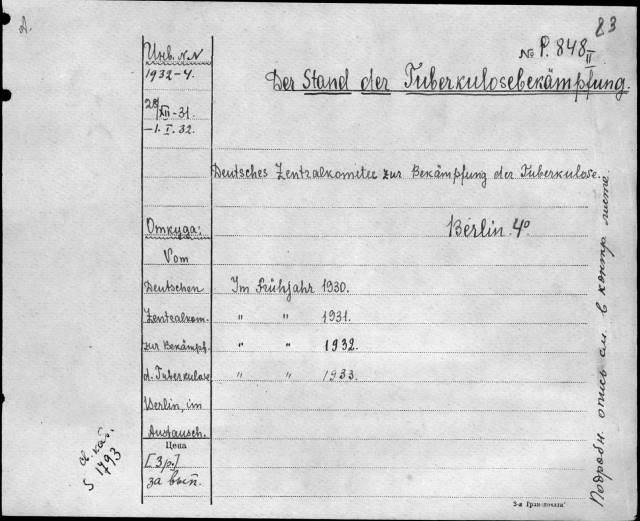 A.
83
№ P. 848 II
Инв. N.N
1932-4.
Der Stand der Tuberkulosebekämpfung.
28/XII-31.
-1. I. 32.
Deutsches Zentralkomitee zur Bekämpfung der Tuberkulose.
Berlin. 4°
Откуда:
Vom
Deutschen
Im Frühjahr 1930.
Zentralkom.
" " 1931.
zur Bekämpf.
" " 1932.
d. Tuberkulose
" " 1933.
Berlin, im
Austausch.
Цена
[3 р.]
за вып.
S 1793
Подробн. опись см. в контр. листе.
3-я Гран-печати